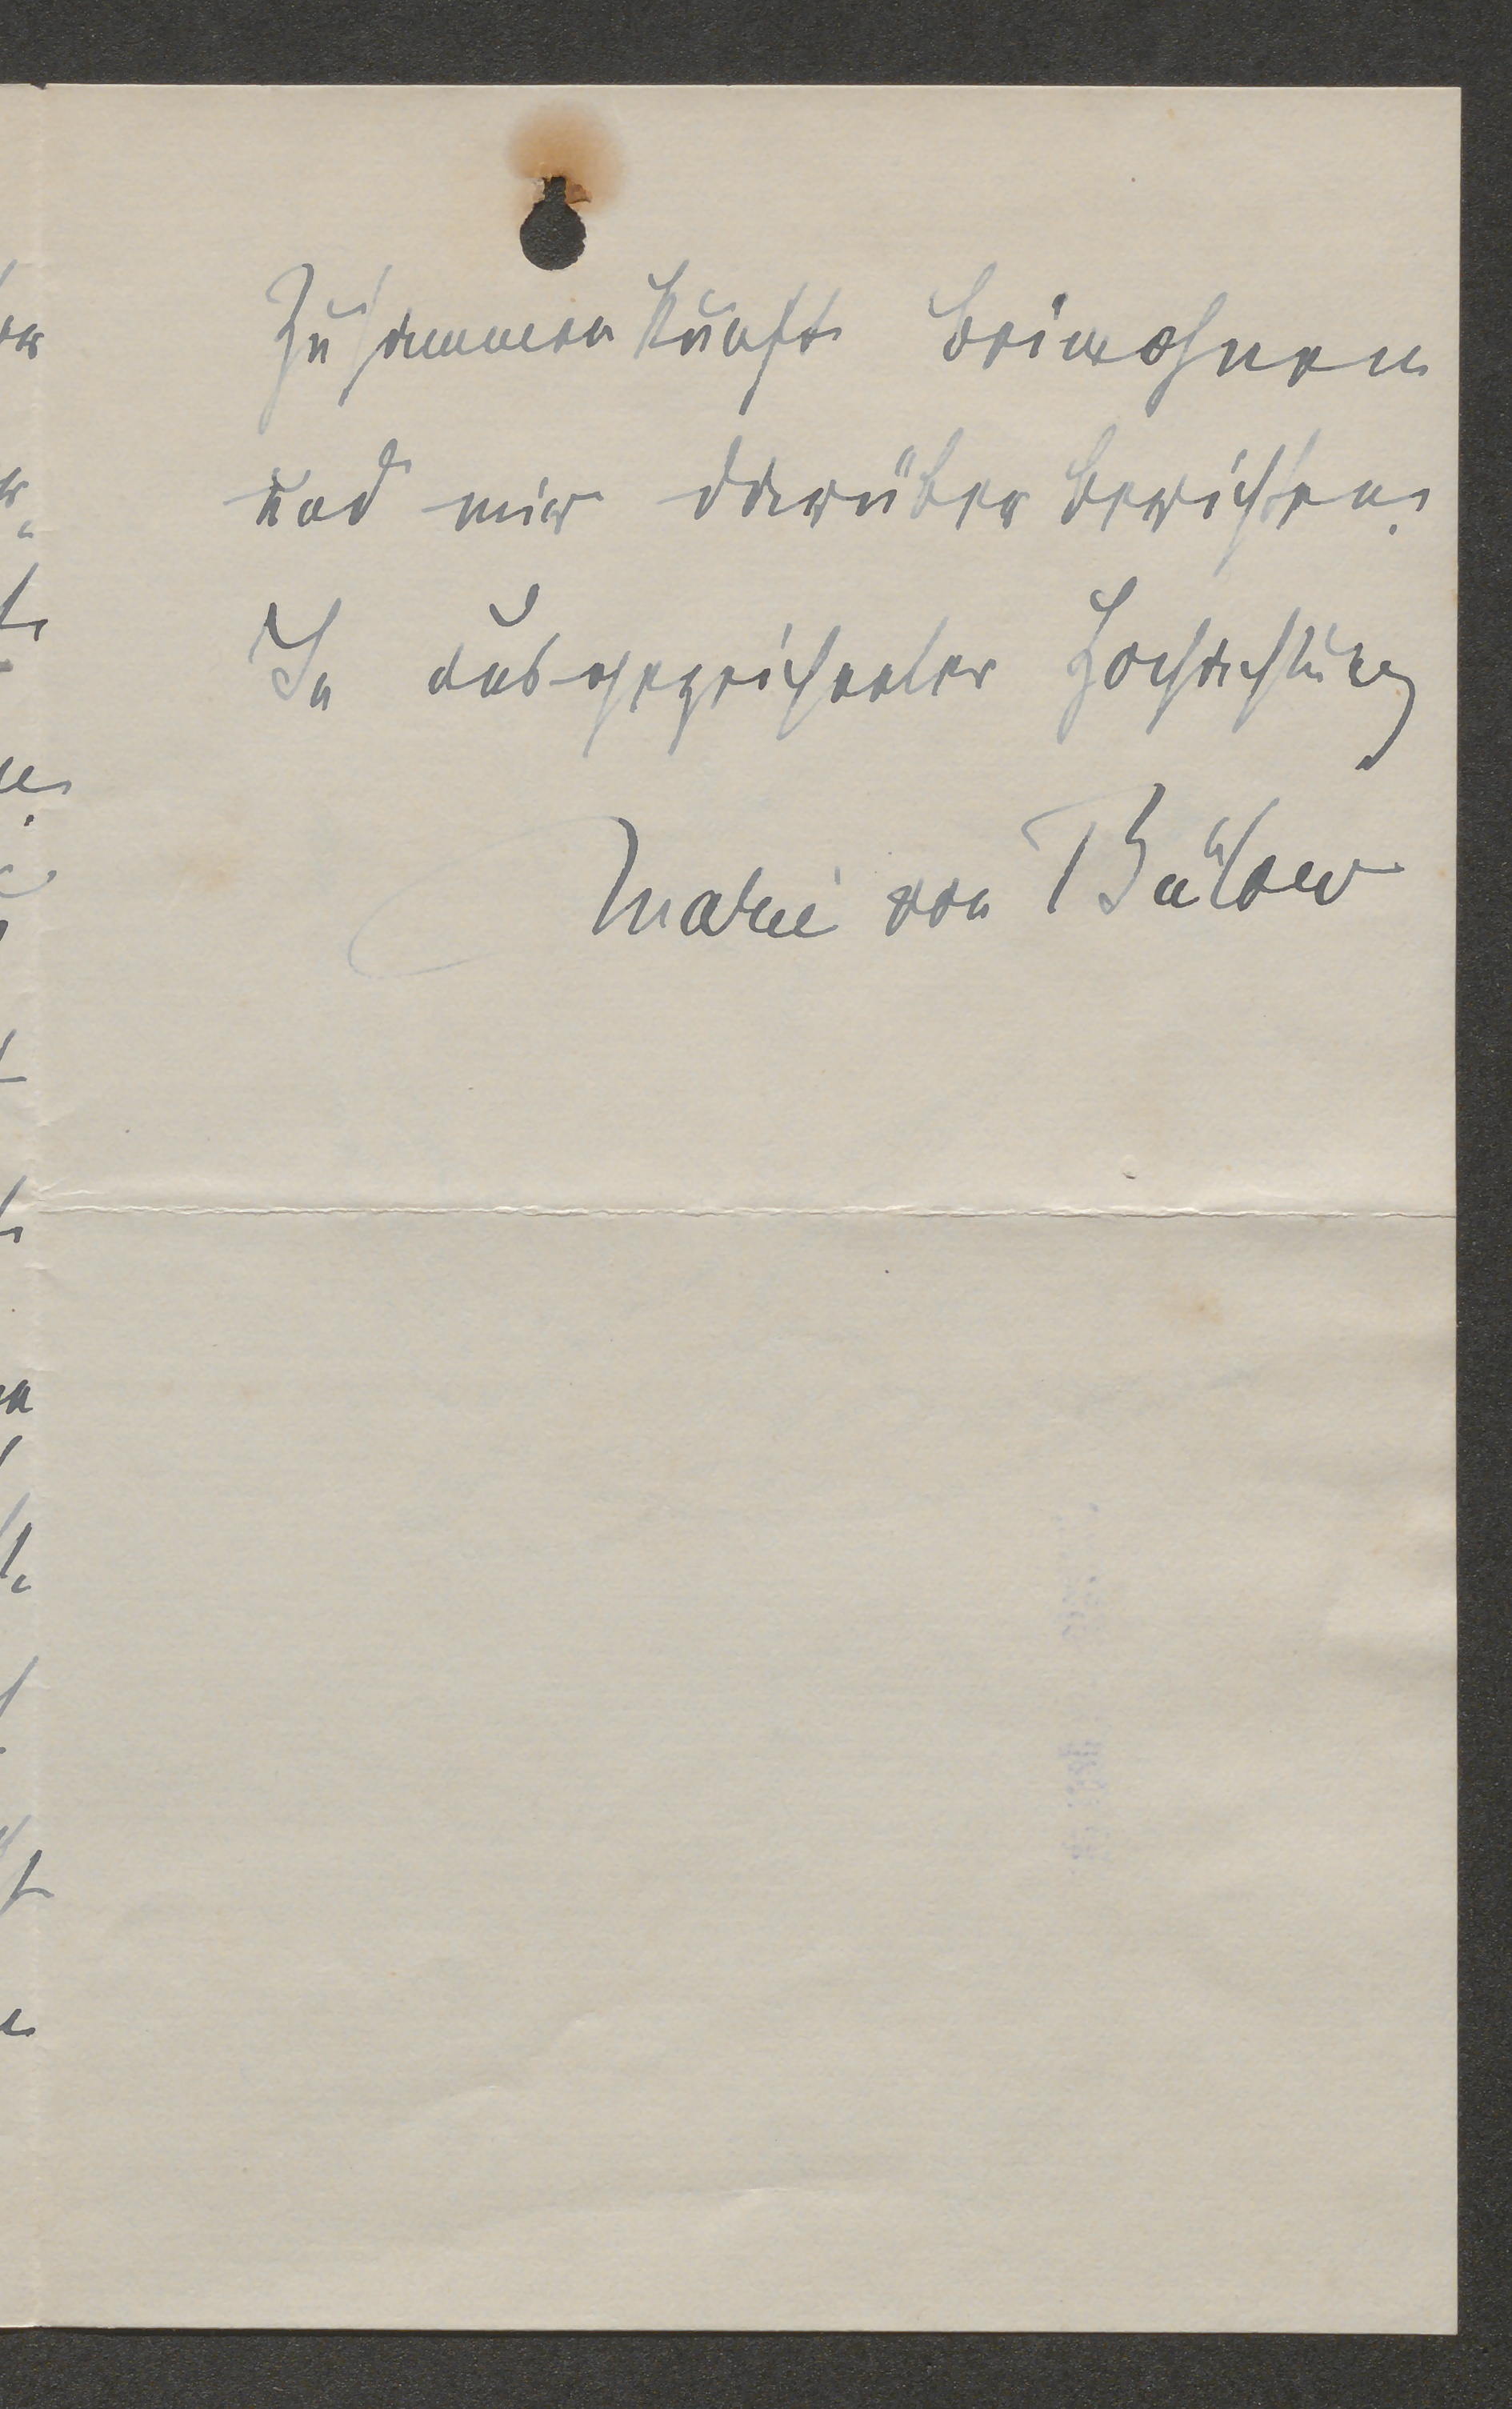 Zusammenkunft beiwohnen
und mir darüber berichten.
In ausgezeichneter Hochachtung
Marie von Bülow